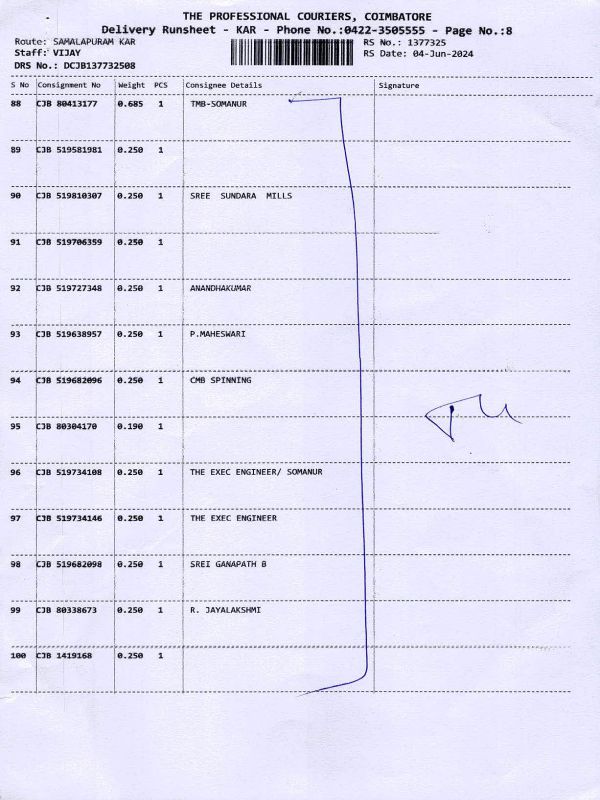 THE PROFESSIONAL COURIERS, COIMBATORE
Delivery Runsheet - KAR - Phone No.:0422-3505555 - Page No.:8
Route: SAMALAPURAM KAR RS No.: 1377325
Staff: VIJAY RS Date: 04-Jun-2024
DRS No.: DCJB137732508
S No Consignment No Weight PCS Consignee Details Signature
88 CJB 80413177 0.685 1 TMB-SOMANUR
89 CJB 519581981 0.250 1
90 CJB 519810307 0.250 1 SREE SUNDARA MILLS
91 CJB 519706359 0.250 1
92 CJB 519727348 0.250 1 ANANDHAKUMAR
93 CJB 519638957 0.250 1 P.MAHESWARI
94 CJB 519682096 0.250 1 CMB SPINNING
95 CJB 80304170 0.190 1
96 CJB 519734108 0.250 1 THE EXEC ENGINEER/ SOMANUR
97 CJB 519734146 0.250 1 THE EXEC ENGINEER
98 CJB 519682098 0.250 1 SREI GANAPATH B
99 CJB 80338673 0.250 1 R. JAYALAKSHMI
100 CJB 1419168 0.250 1